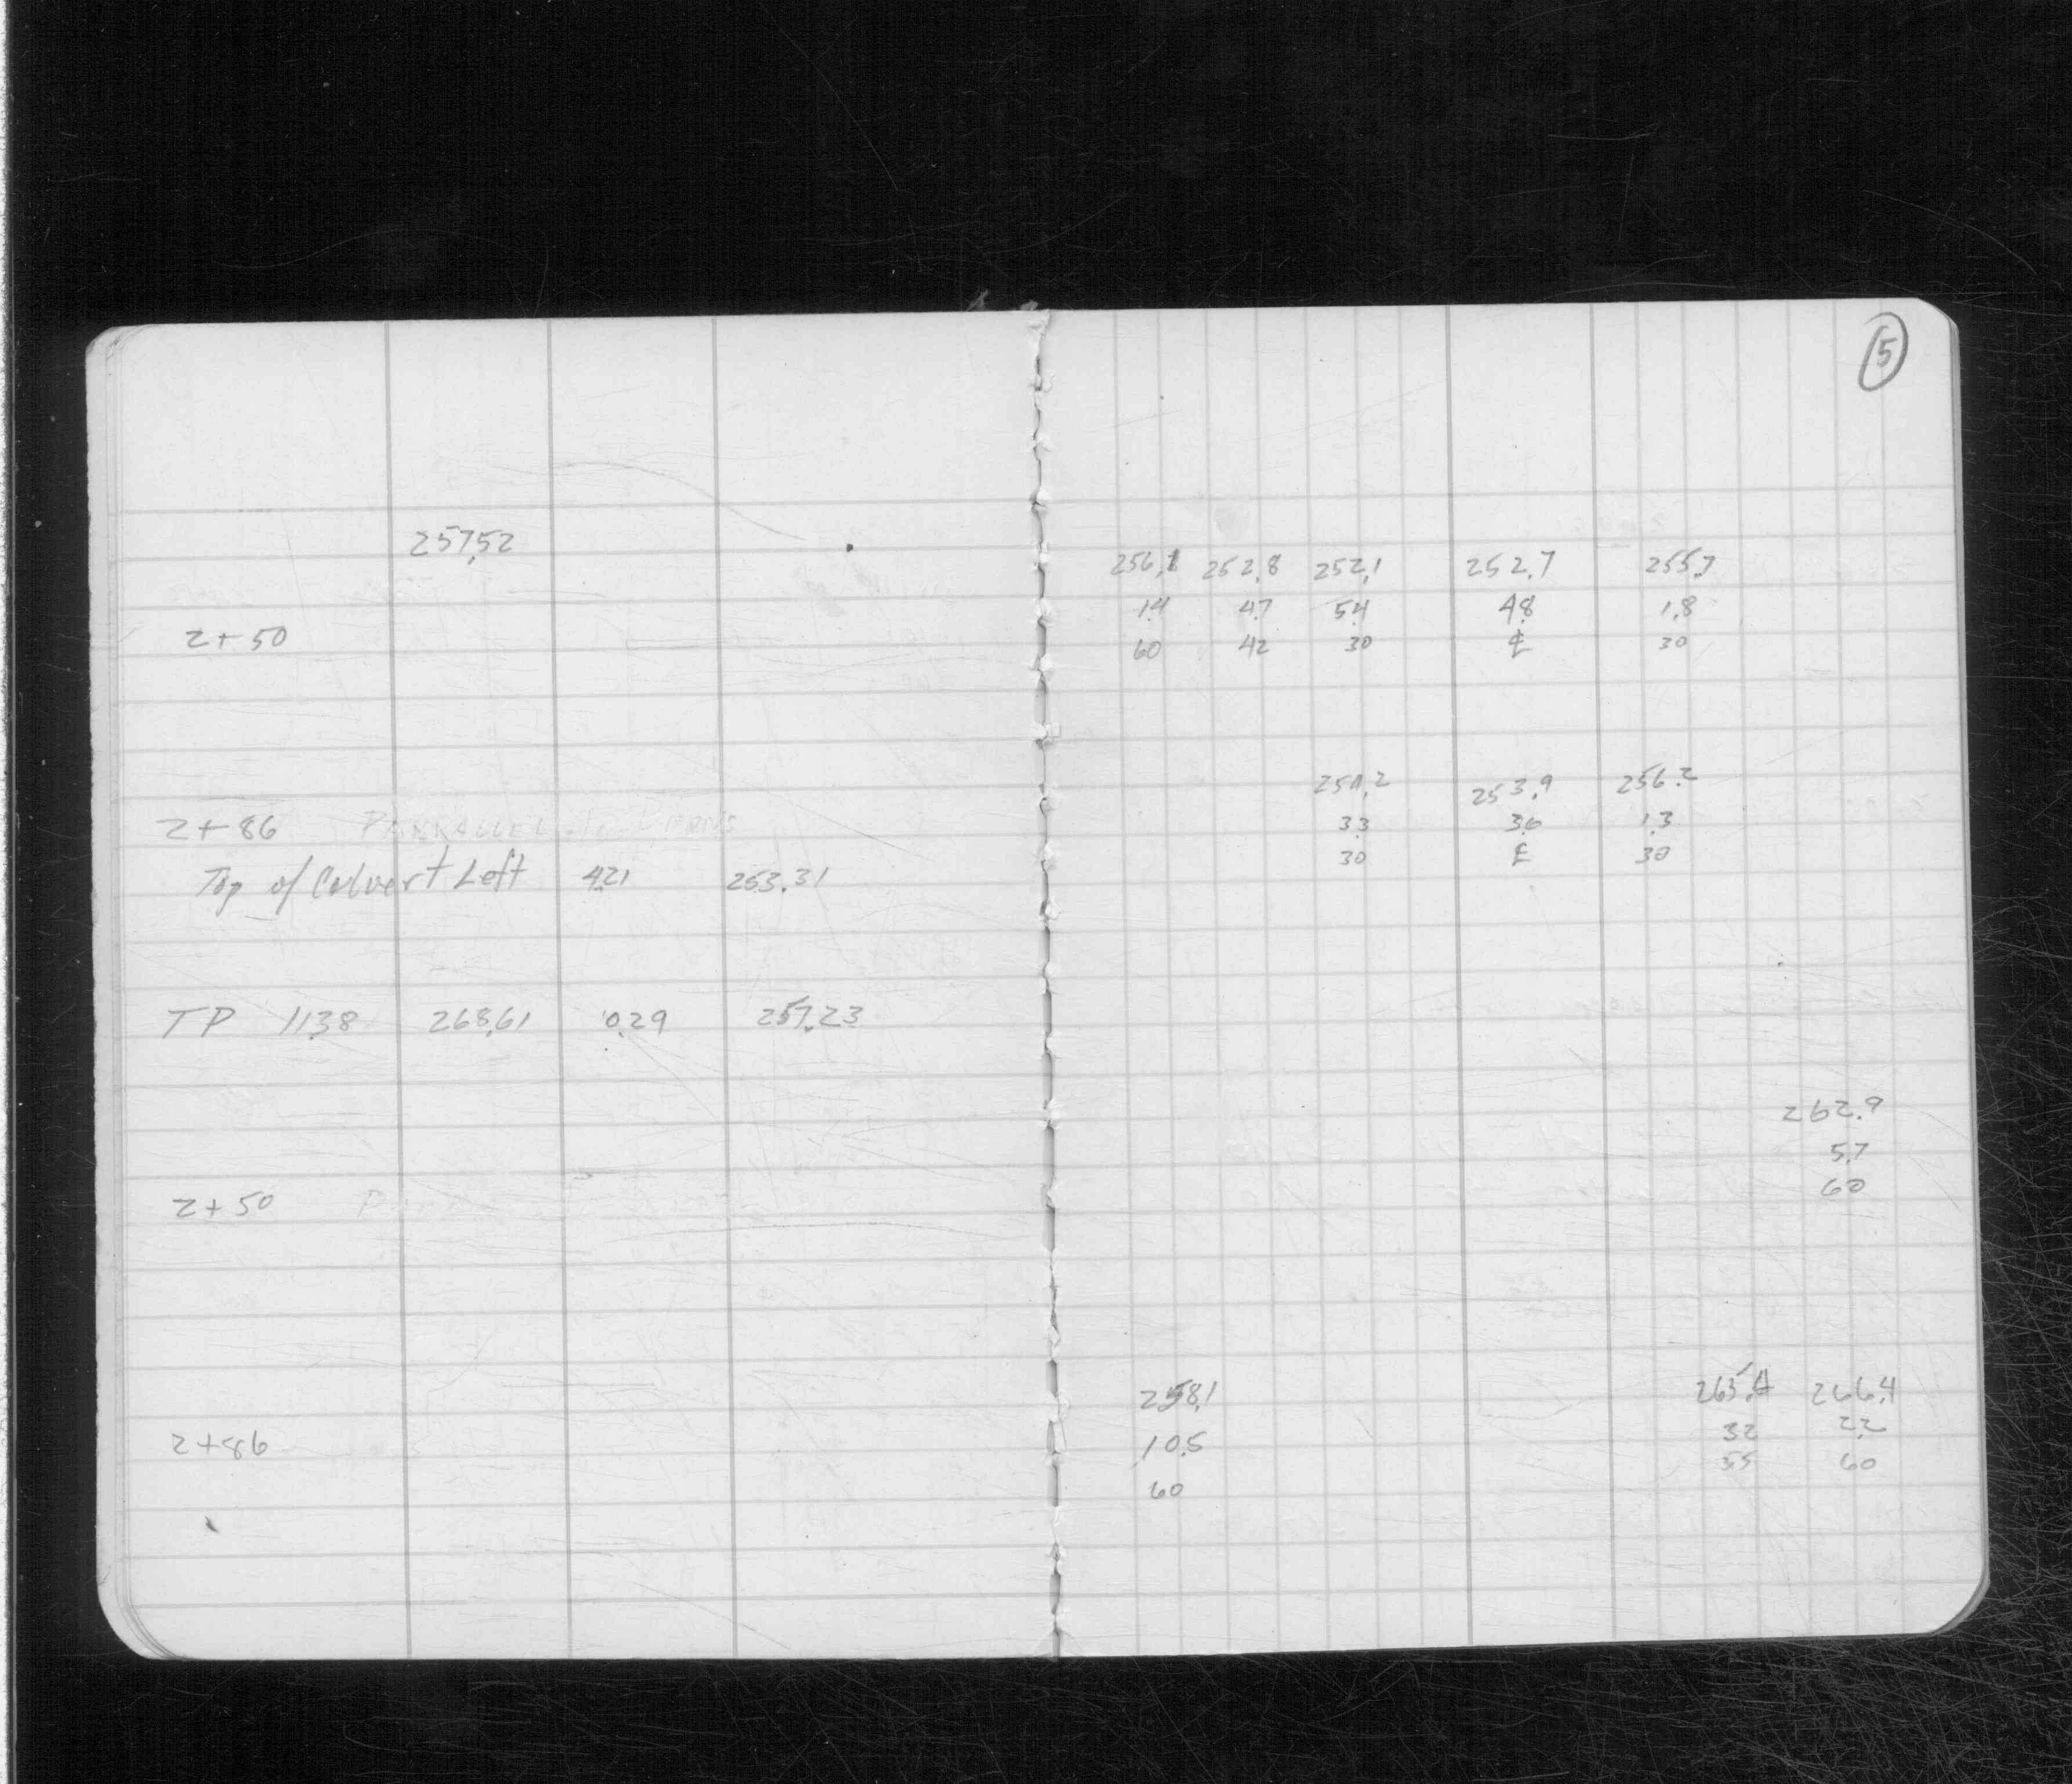 5
257.52
256.1 252.8 252.1 252.7 255.7
1.4 4.7 5.4 4.8 1.8
2+50 60 42 30 ℄ 30
254.2 253.9 256.2
2+86 PARRALLEL To 3.3 3.6 1.3
30 ℄ 30
Top of Culvert Left 4.21 253.31
TP 11.38 268.61 0.29 257.23
262.9
5.7
2+50 60
258.1 265.4 266.4
2+86 10.5 3.2 2.2
60 55 60